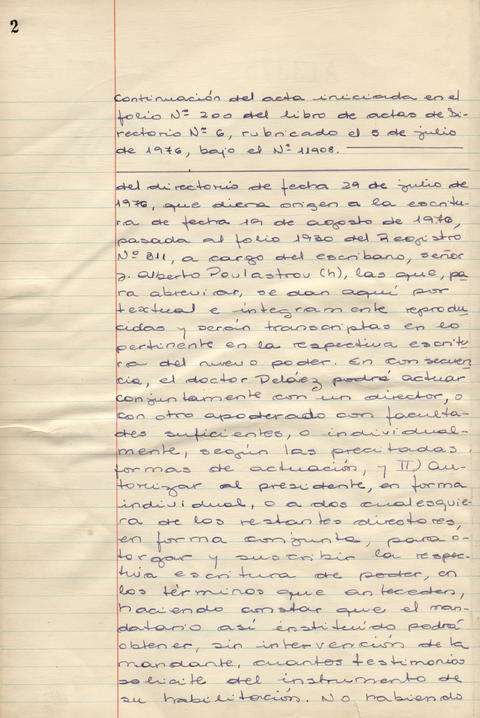 2
Continuación del acta iniciada en el
folio Nº 200 del libro de actas de Di-
rectorio Nº 6, rubricado el 5 de julio
de 1976, bajo el Nº 11908.
del directorio de fecha 29 de julio de
1976, que diera origen a la escritu-
ra de fecha 12 de agosto de 1976,
pasada al folio 1930 del Registro
Nº 311, a cargo del escribano, señor
J. Alberto (h), las que, pa
ra abreviar, se dan aquí por
textual e íntegramente reprodu
cidas y serán transcriptas en lo
pertinente en la respectiva escritu
ra del nuevo poder. En consecuen
cia, el doctor Peláez podrá actuar
conjuntamente con un director, o
con otro apoderado con faculta-
des suficientes, o individual-
mente, según las precitadas
formas de actuación, y II) Au-
torizar al presidente, en forma
individual, o a dos cualesquie-
ra de los restantes directores,
en forma conjunta, para o-
torgar y suscribir la respec-
tiva escritura de poder, en
los términos que anteceden,
haciendo constar que el man-
datario así instituído podrá
obtener, sin intervención de la
mandante, cuantos testimonios
solicite del instrumento de
su habilitación. No habiendo